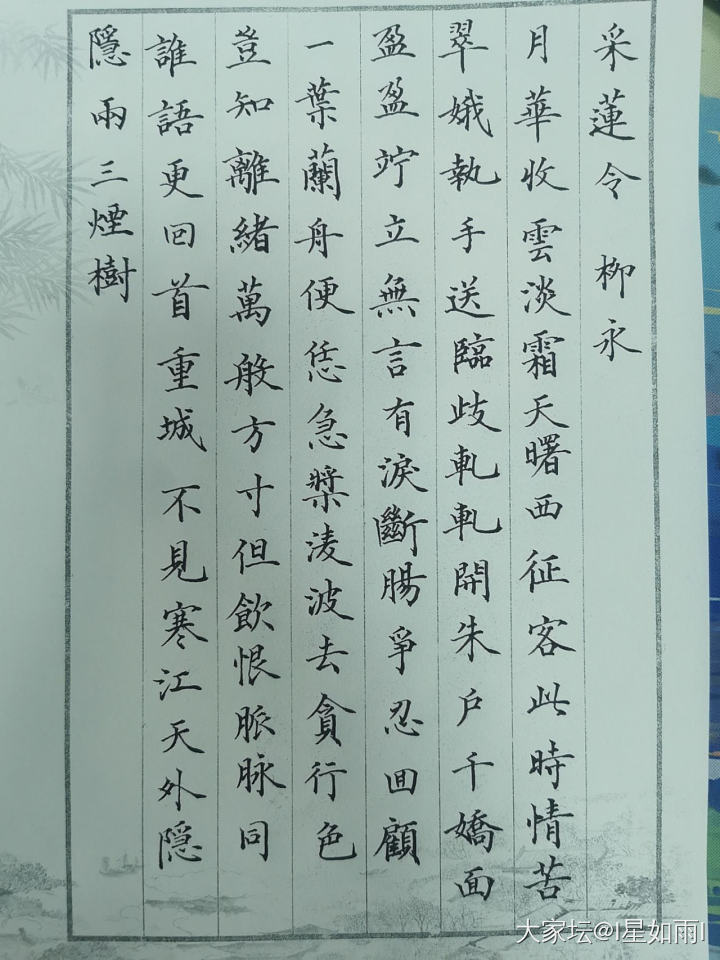 采蓮令 柳永
月華收雲淡霜天曙西征客此時情苦
翠娥執手送臨歧軋軋開朱戶千嬌面
盈盈竚立無言有淚斷腸爭忍回顧
一葉蘭舟便恁急槳淩波去貪行色
豈知離緒萬般方寸但飲恨脈脉同
誰語更回首重城不見寒江天外隱
隱兩三煙樹
大家坛@I星如雨I